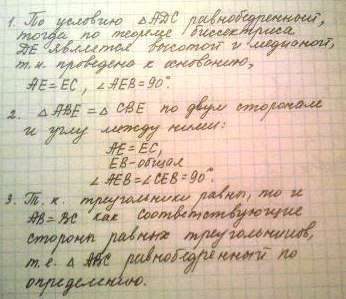 1. По условию △ADC равнобедренный,
тогда по теореме биссектриса
DE является высотой и медианой,
т.к. проведена к основанию,
AE=EC, ∠AEB=90°.
2. △ABE=△CBE по двум сторонам
и углу между ними:
AE=EC,
EB-общая
∠AEB=∠CEB=90°
3. Т.к. треугольники равны, то и
AB=BC как соответствующие
стороны равных треугольников,
т.е. △ABC равнобедренный по
определению.